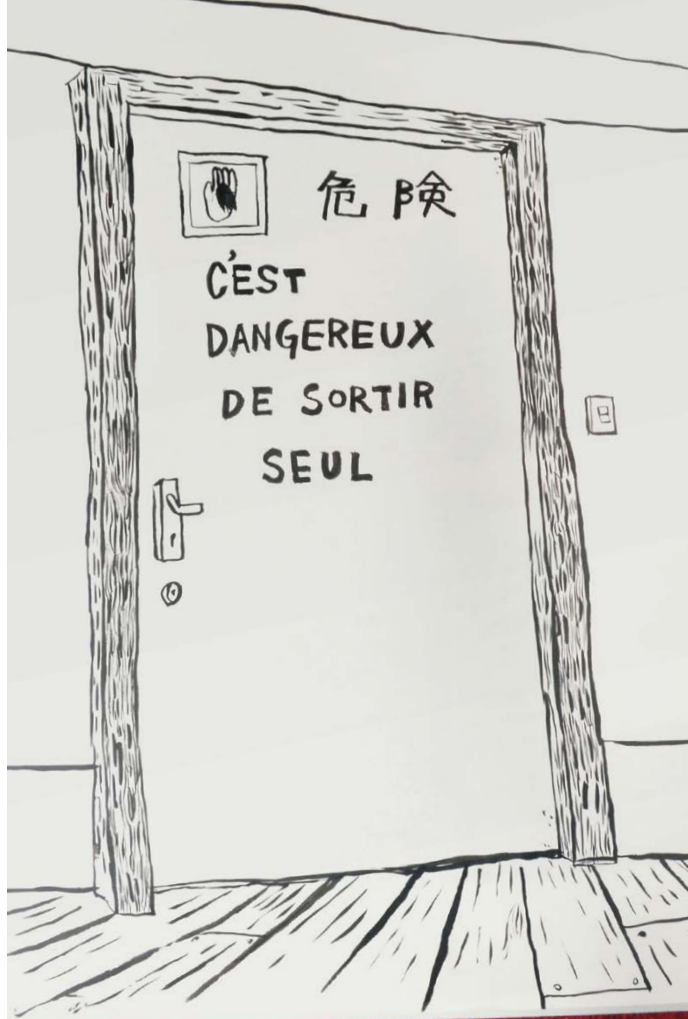 危険
C'EST
DANGEREUX
DE SORTIR
SEUL